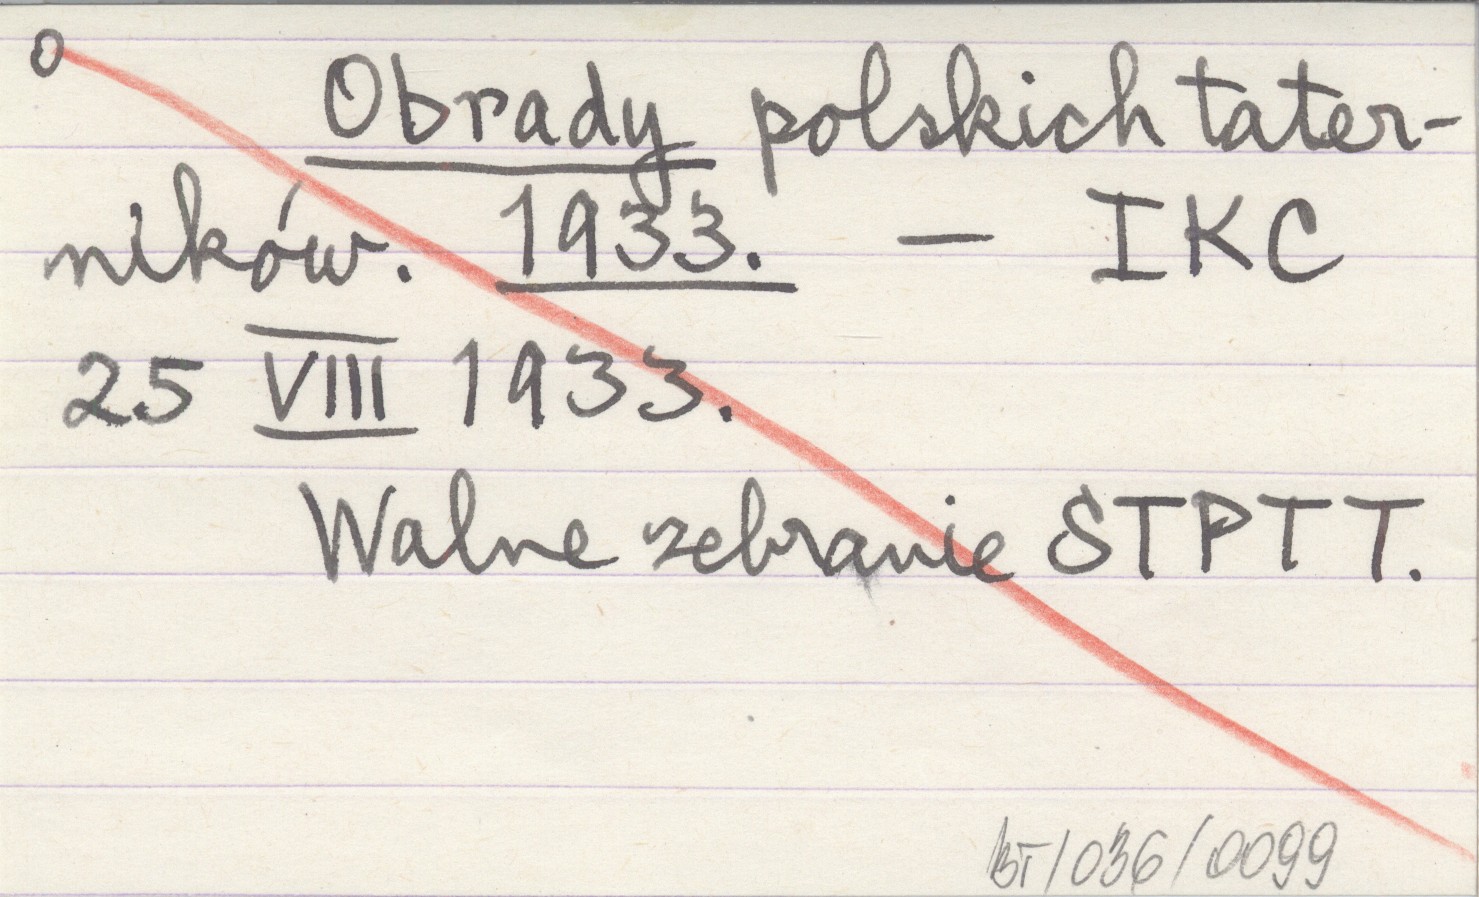 O
Obrady polskich tater-
ników. 1933. — IKC
25 VIII 1933.
Walne zebranie STPTT.
BT/036/0099